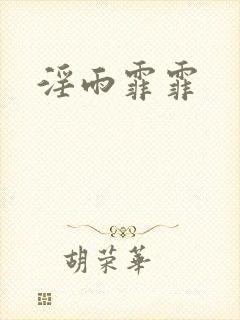 淫雨霏霏
胡荣华